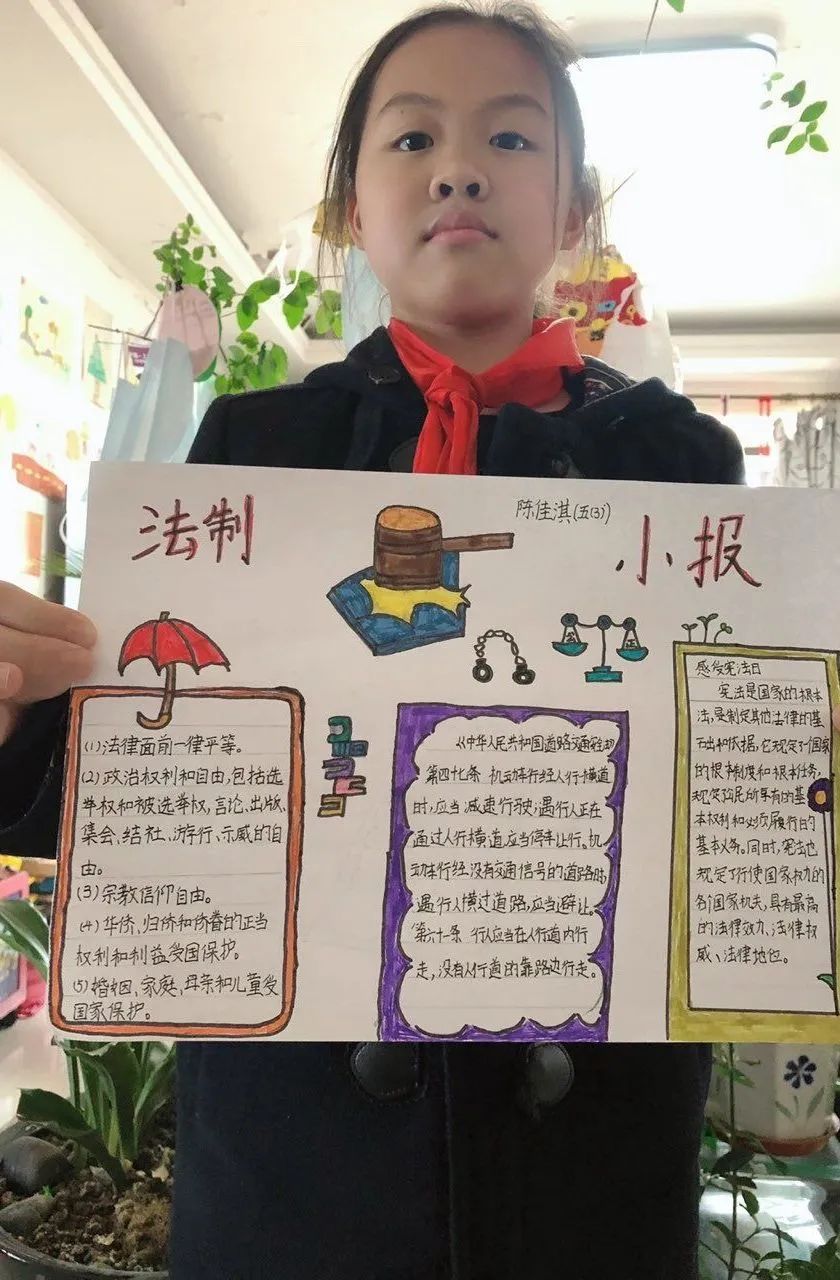 法制
陈佳淇(五(3))
小报
(1)法律面前一律平等。
(2)政治权利和自由,包括选
举权和被选举权,言论、出版、
集会、结社、游行、示威的自
由。
(3)宗教信仰自由。
(4)华侨、归侨和侨眷的正当
权利和利益受国保护。
(5)婚姻、家庭、母亲和儿童受
国家保护。
公正
《中华人民共和国道路交通安全法》
第四十七条 机动车行经人行横道
时,应当减速行驶;遇行人正在
通过人行横道,应当停车让行。机
动车行经没有交通信号的道路时,
遇行人横过道路,应当避让。
第六十一条 行人应当在人行道内行
走,没有人行道的靠路边行走。
感受宪法日
宪法是国家的根本
法,是制定其他法律的基
础和依据,它规定了国家
的根本制度和根本任务,
规定公民所享有的基
本权利和必须履行的
基本义务。同时,宪法也
规定了行使国家权力的
各个国家机关,具有最高
的法律效力、法律权
威、法律地位。